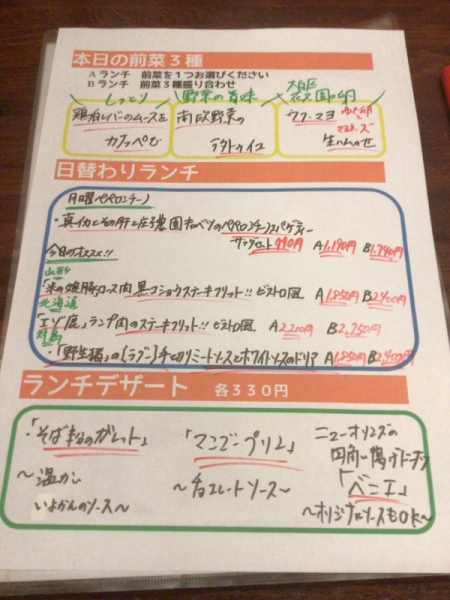 本日の前菜3種
Aランチ 前菜を1つお選びください
Bランチ 前菜3種盛り合わせ
しっとり 野菜の旨味
鶏白レバーのムースを 南欧野菜の ウフ・マヨ ゆで卵
マヨネーズ
カフェぺで ラタトゥイユ 生ハムのせ
日替わりランチ
月曜ペペロンチーノ
・真イカとその肝と 園キャベツのペペロンチーノスパゲティー
サラダセット990円 A1,190円 B1,740円
今日のオススメ!!
山形
「米の娘豚」ロース肉 黒コショウステーキフリット!! ビストロ風 A1,850円 B2,400円
北海道
「エゾ鹿」ランプ肉のステーキフリット!! ビストロ風 A2,200円 B2,750円
対馬
・「野生猪」の(ラグー)手切りミートソースとホワイトソースのドリア A1,850円 B2,400円
ランチデザート 各330円
・「そば粉のガレット」 「マンゴープリン」 ニューオリンズの
四角い揚げドーナツ
～温かい ～チョコレートソース～ 「ベニエ」
いよかんのソース～ ～オリジナルソースもOK～